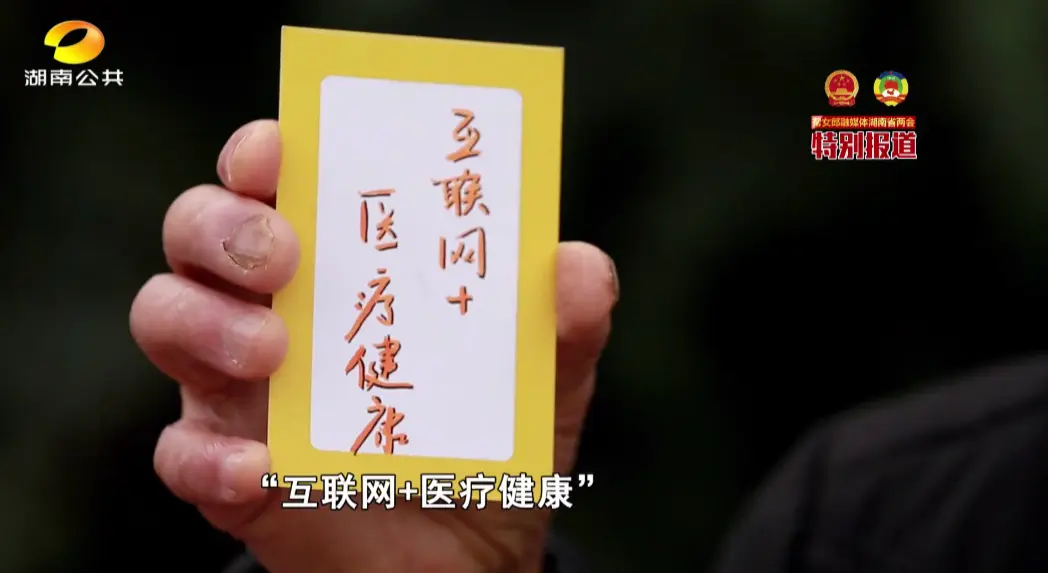 湖南公共
女郎融媒体湖南省两会
特别报道
互联网+
医疗健康
“互联网+医疗健康”